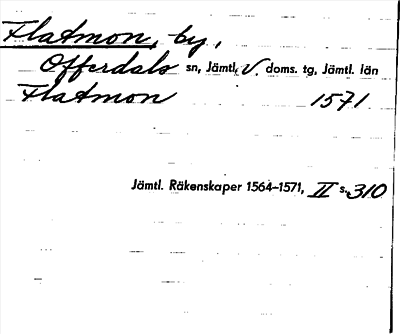 Flatmon, by,
Offerdals sn, Jämtl. V. doms. tg, Jämtl. län
Flatmon 1571
Jämtl. Räkenskaper 1564–1571, II s. 310